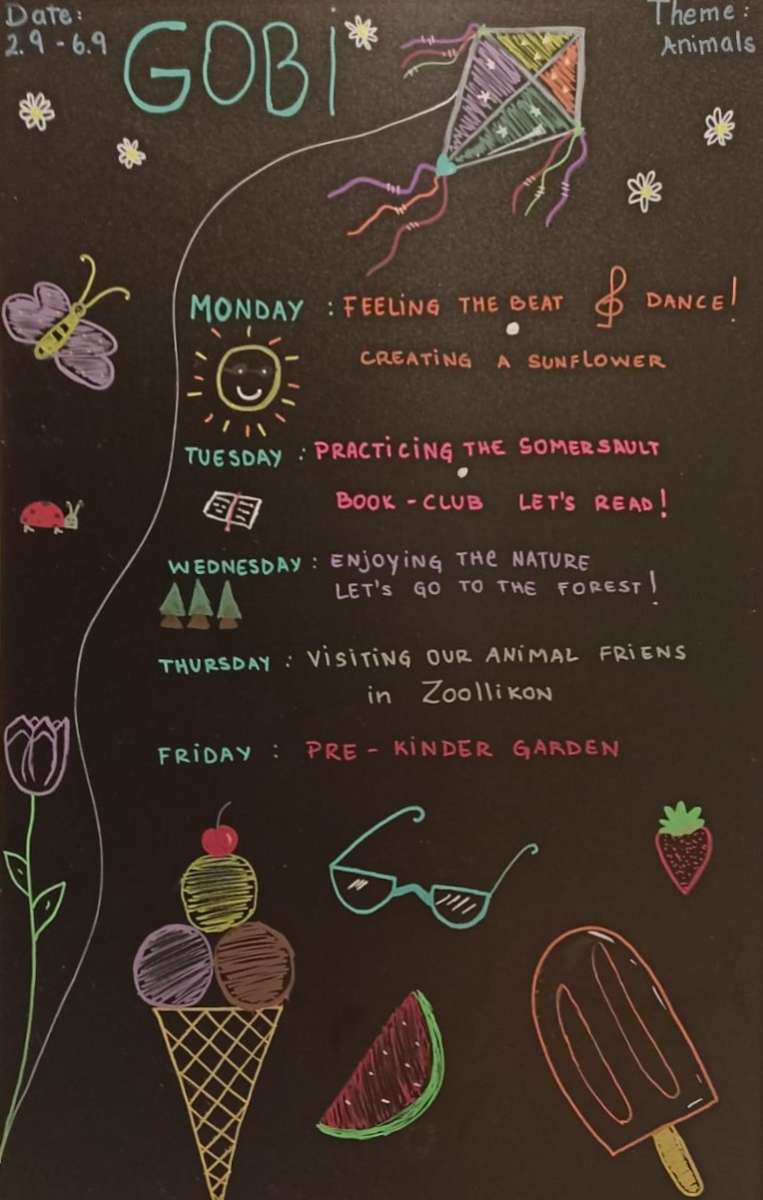 Date:
2.9 - 6.9
GOBI
Theme:
Animals
MONDAY : FEELING THE BEAT DANCE!
CREATING A SUNFLOWER
TUESDAY : PRACTICING THE SOMERSAULT
BOOK - CLUB LET'S READ!
WEDNESDAY : ENJOYING THE NATURE
LET'S GO TO THE FOREST!
THURSDAY : VISITING OUR ANIMAL FRIENS
in Zoollikon
FRIDAY : PRE - KINDER GARDEN